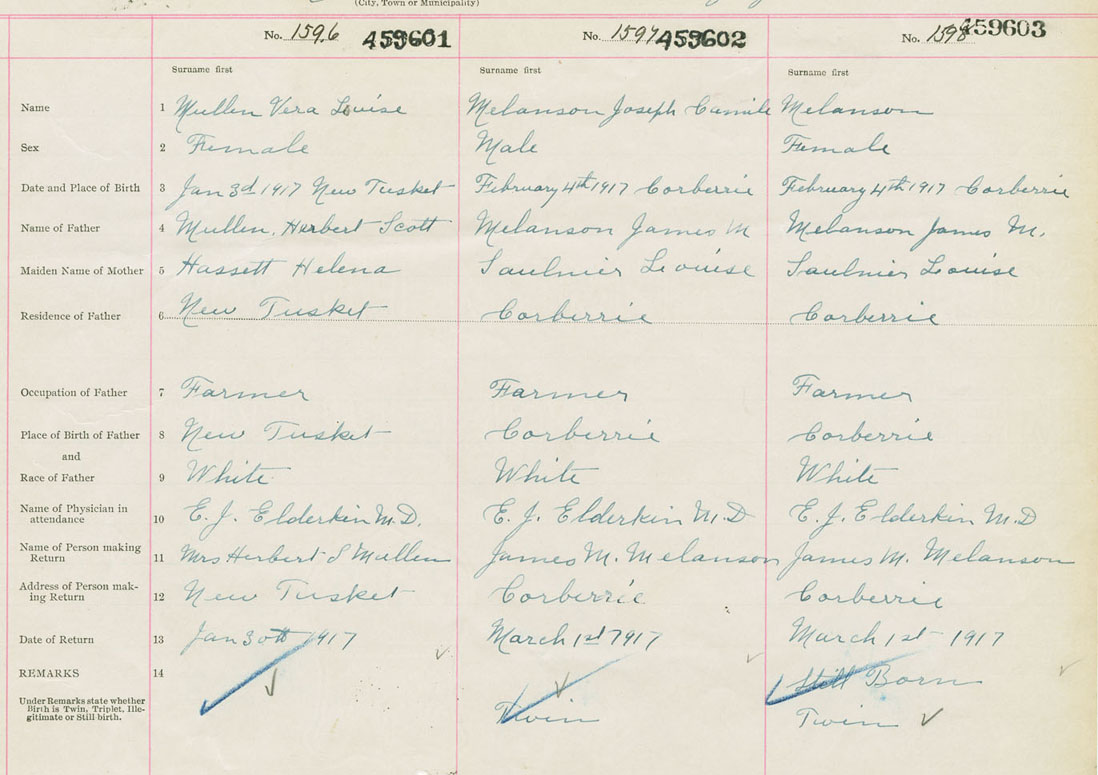 (City, Town or Municipality)
No. 1596 459601 No. 1597 459602 No. 1598 459603
Surname first Surname first Surname first
Name 1 Mullen Vera Louise Melanson Joseph Camile Melanson
Sex 2 Female Male Female
Date and Place of Birth 3 Jan 3d 1917 New Tusket February 4th 1917 Corberrie February 4th 1917 Corberrie
Name of Father 4 Mullen, Herbert Scott Melanson James M Melanson James M.
Maiden Name of Mother 5 Hassett Helena Saulnier Louise Saulnier Louise
Residence of Father 6 New Tusket Corberrie Corberrie
Occupation of Father 7 Farmer Farmer Farmer
Place of Birth of Father 8 New Tusket Corberrie Corberrie
and
Race of Father 9 White White White
Name of Physician in
attendance 10 E. J. Elderkin M.D. E. J. Elderkin M.D E. J. Elderkin M.D
Name of Person making
Return 11 Mrs Herbert S Mullen James M. Melanson James M. Melanson
Address of Person mak-
ing Return 12 New Tusket Corberrie Corberrie
Date of Return 13 Jan 30th 1917 March 1st 1917 March 1st 1917
REMARKS 14 Still Born
Under Remarks state whether
Birth is Twin, Triplet, Ille-
gitimate or Still birth. Twin Twin